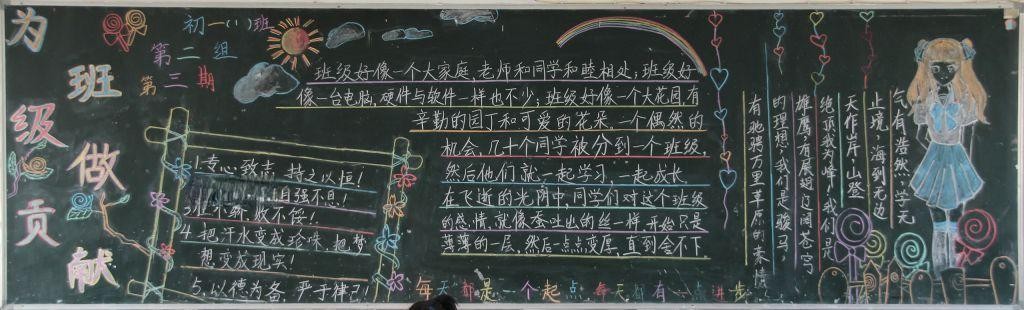 为班级做贡献
初一(1)班
第二组
第三期
班级好像一个大家庭,老师和同学和睦相处;班级好
像一台电脑,硬件与软件一样也不少;班级好像一个大花园有
辛勤的园丁和可爱的花朵。一个偶然的
机会,几十个同学被分到一个班级,
然后他们就一起学习,一起成长
在飞逝的光阴中,同学们对这个班级
的感情,就像蚕吐出的丝一样,开始只是
薄薄的一层,然后一点点变厚,直到会不下
1.专心致志 持之以恒!
自强不息!
3.胜不骄 败不馁!
4.把汗水变成珍珠 把梦
想变成现实!
5.以德为备,严于律己!
每天都是一个起点 每天都有一点进步
气有浩然 学无
止境 海到无边
天作岸,山登
绝顶我为峰!我们是
雄鹰,有展翅辽阔苍穹
的理想;我们是骏马,
有驰骋万里草原的豪情